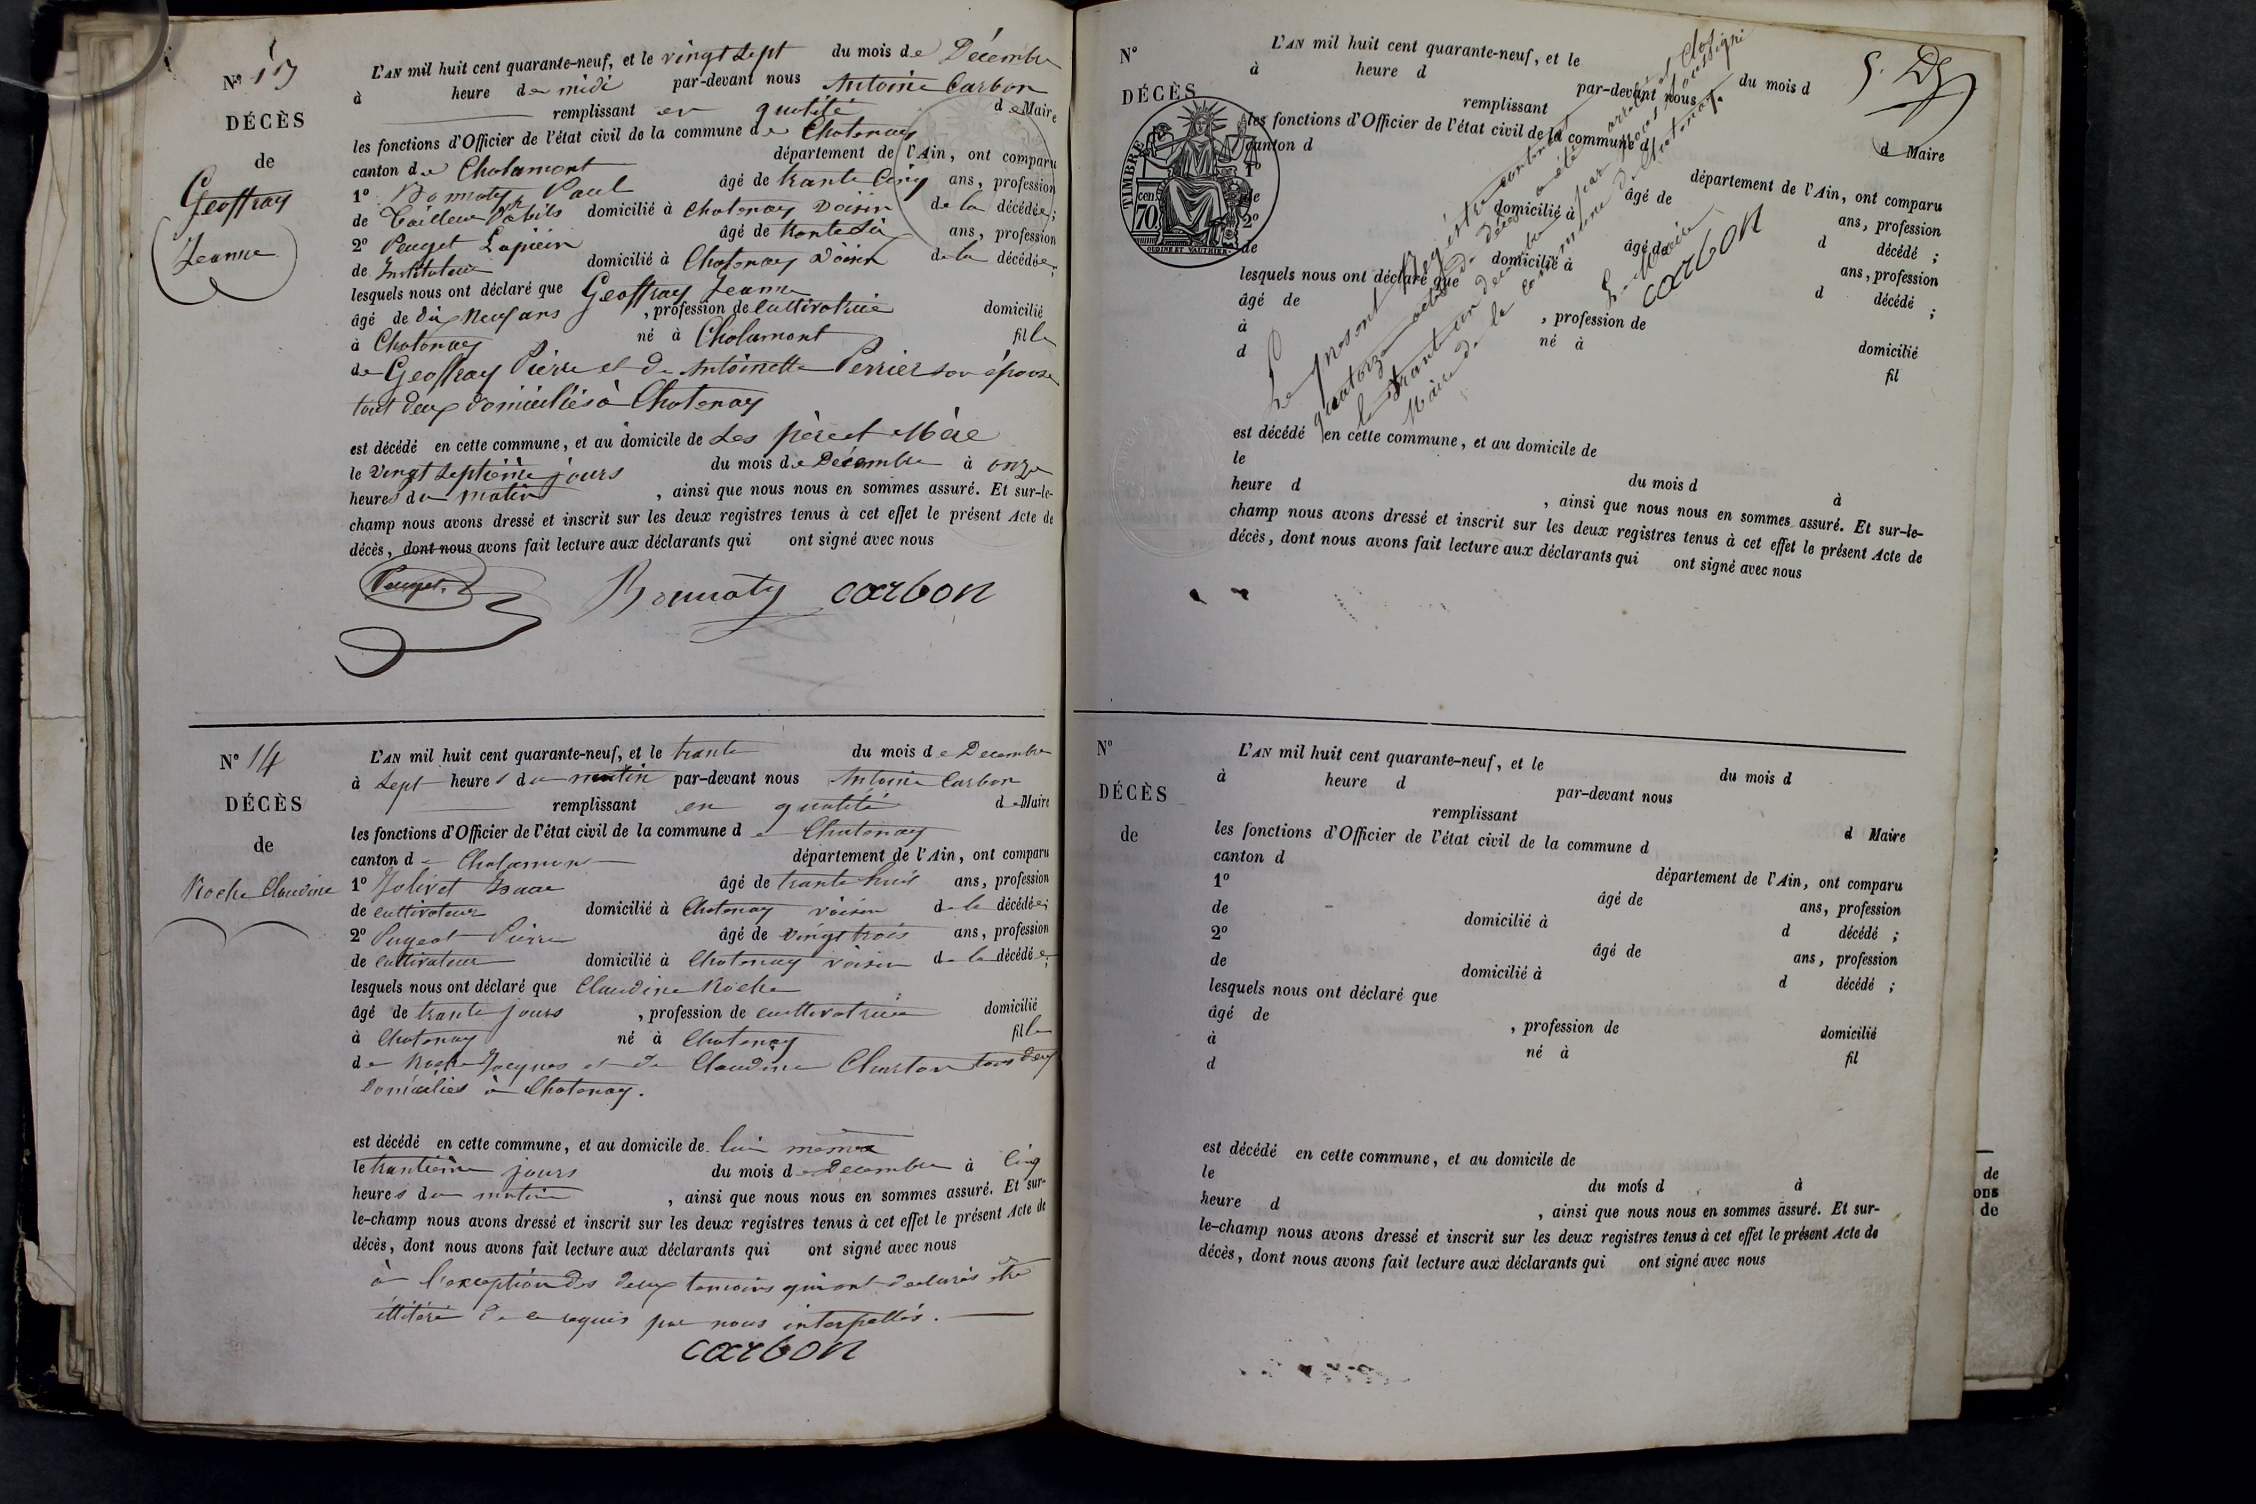 N° 13
DÉCÈS
de
Geoffray
Jeanne
L'AN mil huit cent quarante-neuf, et le vingt sept du mois de Décembre
à heure de midi par-devant nous Antoine Carbon
remplissant en qualité de Maire
les fonctions d'Officier de l'état civil de la commune de Chatenay
canton de Chalamont département de l'Ain, ont comparu
1° Bonnaty Paul âgé de trante Cinq ans, profession
de Tailleur d'abits domicilié à Chatenay voisin de la décédée;
2° Peuget âgé de trante Six ans, profession
de Instituteur domicilié à Chatenay voisin de la décédée;
lesquels nous ont déclaré que Geoffray Jeanne
âgé de dix Neuf ans, profession de cultivatrice domicilié
à Chatenay né à Chalamont fille
de Geoffray Pierre et de Antoinette Perrier son épouse
tout deux domiciliés à Chatenay
est décédé en cette commune, et au domicile de Ses père et Mère
le vingt septième jours du mois de Décembre à onze
heures du matin, ainsi que nous nous en sommes assuré. Et sur-le-
champ nous avons dressé et inscrit sur les deux registres tenus à cet effet le présent Acte de
décès, dont nous avons fait lecture aux déclarants qui ont signé avec nous
Peuget. Bonnaty carbon
N° 14
DÉCÈS
de
Roche Claudine
L'AN mil huit cent quarante-neuf, et le trante du mois de Decembre
à Sept heures du matin par-devant nous Antoine Carbon
remplissant en qualité de Maire
les fonctions d'Officier de l'état civil de la commune de Chatenay
canton de Chalamont département de l'Ain, ont comparu
1° Jolivet Isaac âgé de trante huit ans, profession
de cultivateur domicilié à Chatenay voisin de la décédée;
2° Pugeat Pierre âgé de vingt trois ans, profession
de cultivateur domicilié à Chatenay voisin de la décédée;
lesquels nous ont déclaré que Claudine Roche
âgé de trante jours, profession de cultivatrice domicilié
à Chatenay né à Chatenay fille
de Roche Jacques et de Claudine Churton tous deux
domiciliés à Chatenay.
est décédé en cette commune, et au domicile de lui même
le trantième jours du mois de Decembre à Cinq
heures du matin, ainsi que nous nous en sommes assuré. Et sur-
le-champ nous avons dressé et inscrit sur les deux registres tenus à cet effet le présent Acte de
décès, dont nous avons fait lecture aux déclarants qui ont signé avec nous
à l'exception des deux temoins qui ont declarés être
illitéré de ce requis par nous interpellés.
carbon
N°
DÉCÈS
TIMBRE
70.
OUDINE ET VAUTHIER
L'AN mil huit cent quarante-neuf, et le du mois d
à heure d par-devant nous
remplissant d Maire
les fonctions d'Officier de l'état civil de la commune d
canton d département de l'Ain, ont comparu
1° âgé de ans, profession
de domicilié à d décédé ;
2° âgé de ans, profession
de domicilié à d décédé ;
lesquels nous ont déclaré que
âgé de , profession de domicilié
à né à fil
d
Le présent Registre contenant
quatorze actes de décès a été arrêté et Clos
le trant un decembre par nous soussigné
Maire de la commune de Chatenay.
Le Maire
carbon
est décédé en cette commune, et au domicile de
le du mois d à
heure d , ainsi que nous nous en sommes assuré. Et sur-le-
champ nous avons dressé et inscrit sur les deux registres tenus à cet effet le présent Acte de
décès, dont nous avons fait lecture aux déclarants qui ont signé avec nous
N°
DÉCÈS
de
L'AN mil huit cent quarante-neuf, et le du mois d
à heure d par-devant nous
remplissant d Maire
les fonctions d'Officier de l'état civil de la commune d
canton d département de l'Ain, ont comparu
1° âgé de ans, profession
de domicilié à d décédé ;
2° âgé de ans, profession
de domicilié à d décédé ;
lesquels nous ont déclaré que
âgé de , profession de domicilié
à né à fil
d
est décédé en cette commune, et au domicile de
le du mois d à
heure d , ainsi que nous nous en sommes assuré. Et sur-
le-champ nous avons dressé et inscrit sur les deux registres tenus à cet effet le présent Acte de
décès, dont nous avons fait lecture aux déclarants qui ont signé avec nous
de
ons
de